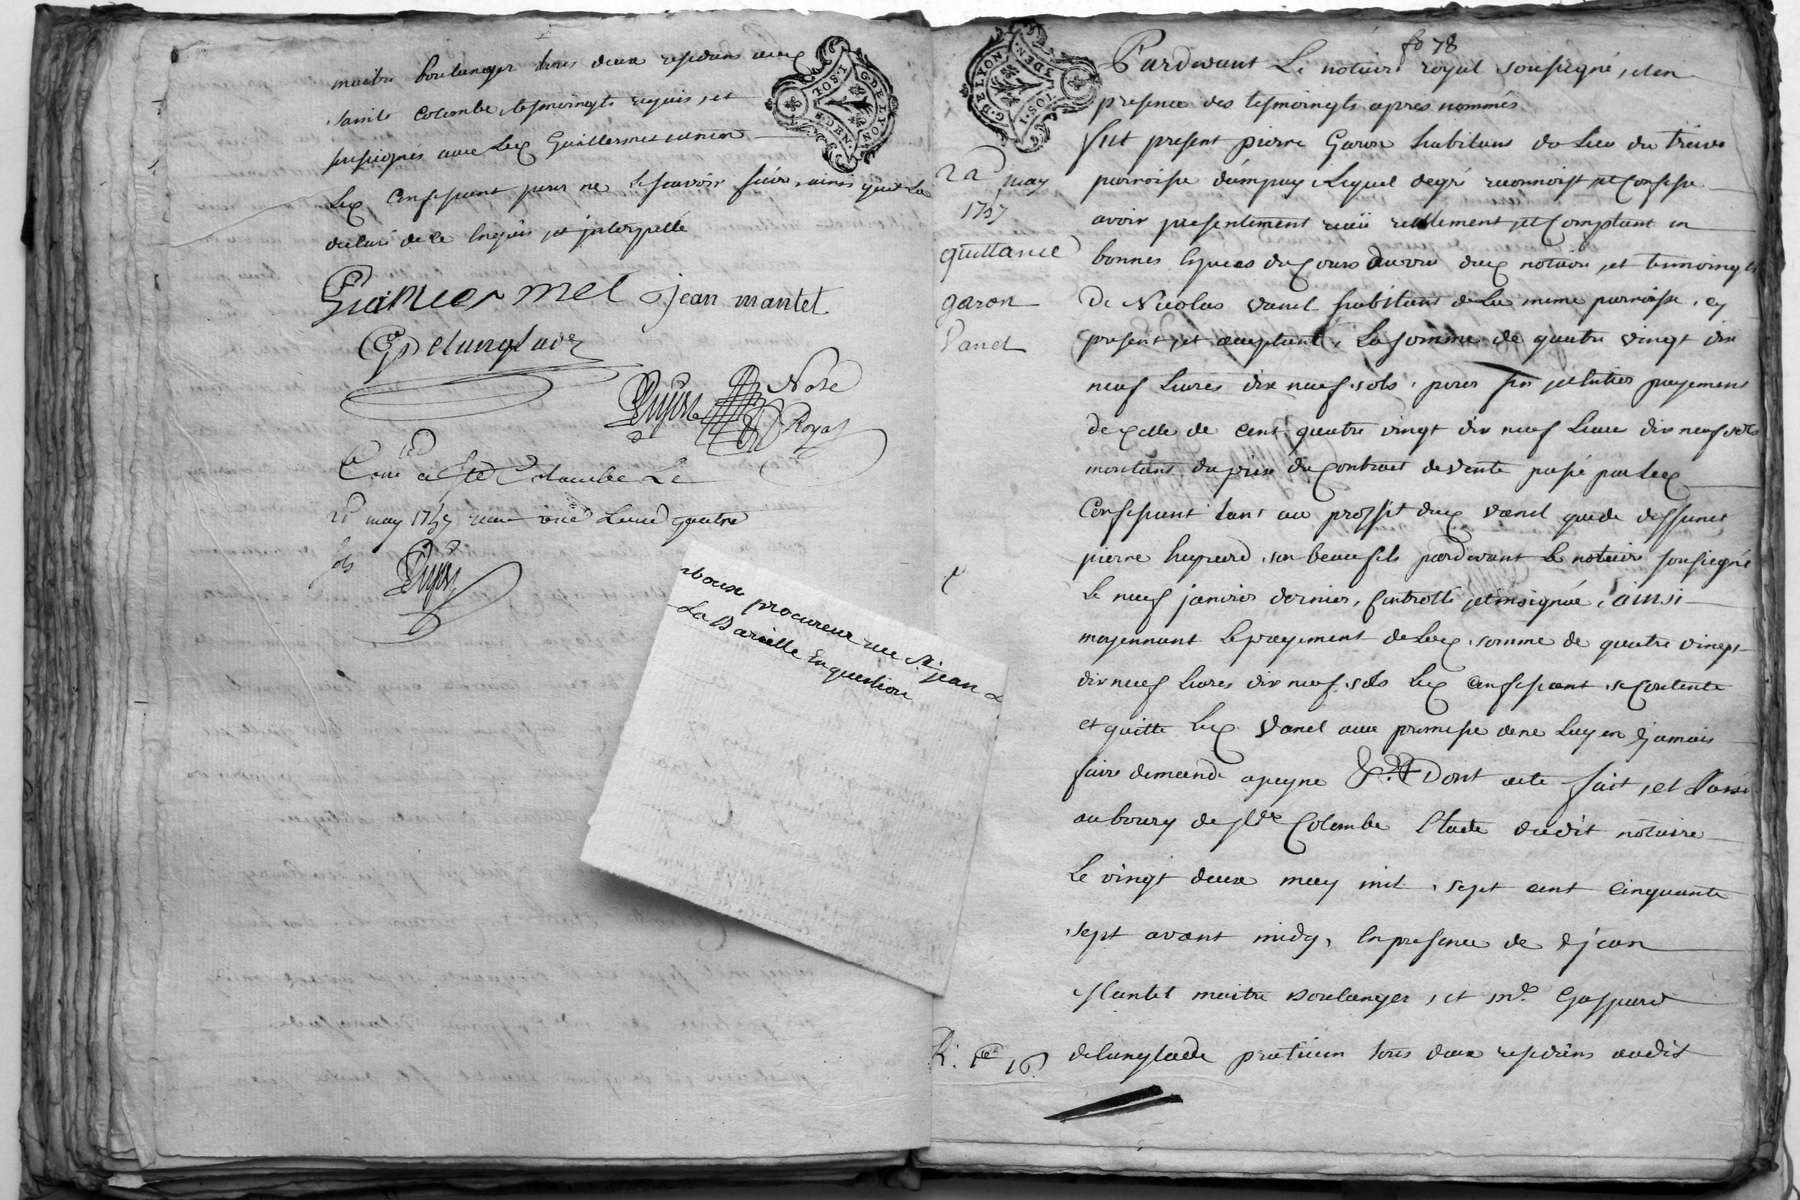 maitre boulanger tous deux residans aud
sainte Colombe, tesmoingts requis, et
soussignés avec led Guillermet
led Confessant pour ne le scavoir faire, ainsi que la
declaré de ce enquis et interpellé
Guillermet jean mantet
GDelanglade
Dujast Nore
Royal
Coné à Ste Colombe Le
may 1757 reçu une Livre quatre
sols Dujast
G. DE LYON
1. SOL
G. DE LYON
1. SOL
procureur rue St. jean
La Barielle En question
fo 78
Pardevant Le notaire royal soussigné, et en
presence des tesmoingts apres nommés
fut present pierre Garon habitant du Lieu du Treive
parroisse d'ampuy Lequel de gré reconnoist et Confesse
22 may
1757
avoir presentement reçü reellement, et Comptant en
quittance
bonnes especes du Cours au vu dud notaire, et temoingts
garon
de Nicolas vanel habitant de la meme parroisse, cy
Vanel
present, et acceptant, La somme de quatre vingt dix
neuf Livres dix neuf sols, pour fin et entier payement
de Celle de Cent quatre vingt dix neuf Livre dix neuf sols
montant du prix du Contract de vente passé par led
Confessant tant au proffit dud vanel que de deffunct
pierre son beaufils pardevant Le notaire soussigné
Le neuf janvier dernier, Controllé et insignué, ainsi
moyennant Le payement de lad somme de quatre vingt
dix neuf livres dix neuf sols Led Confessant se Contente
et quitte led Vanel avec promesse de ne luy en jamais
faire demande a peyne &. Dont acte fait, et Passé
au bourg de ste Colombe Etude dudit notaire
Le vingt deux may mil sept cent Cinquante
sept avant midy, En presence de Sr jean
Mantet maitre boulanger, et mr. Gaspard
R. 16
delanglade praticien tous deux residans audit